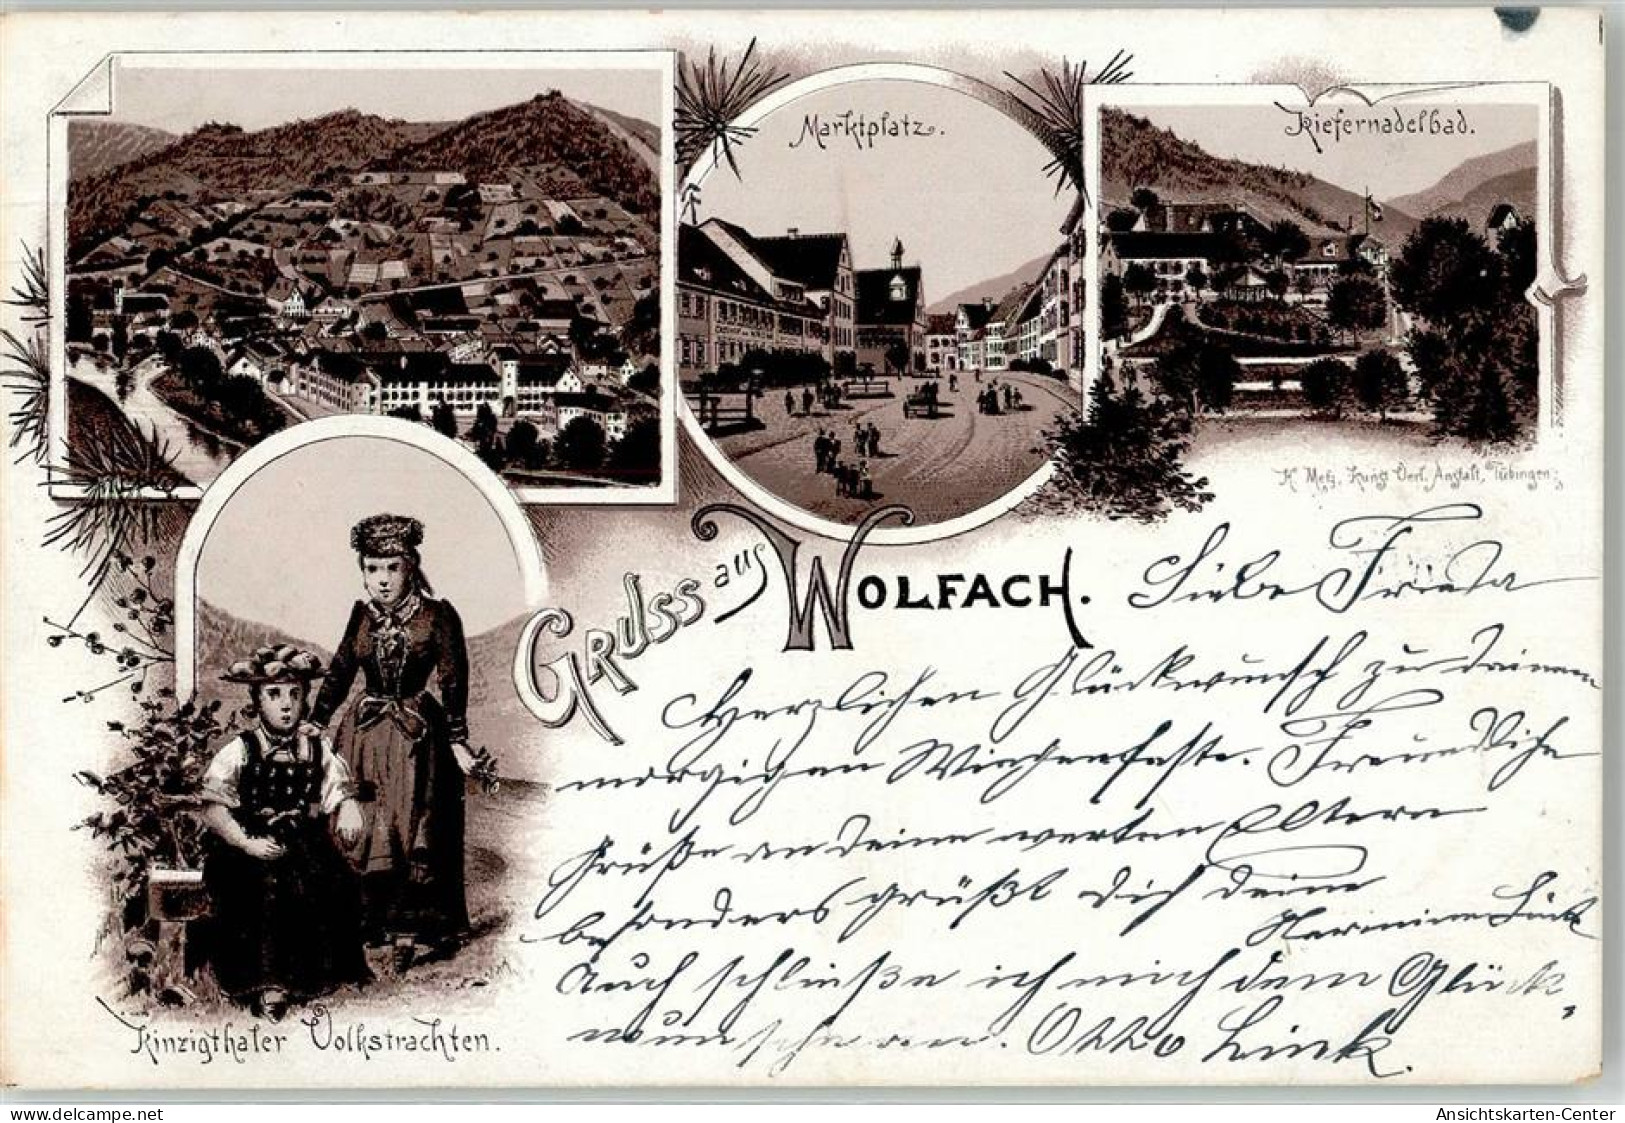 Marktplatz.
Kiefernadelbad.
K. Metz, Kunst Verl. Anstalt, Tübingen.
Gruss aus WOLFACH.
Liebe Frieda
Herzlichen Glückwunsch zu deinem
morgigen Wiegenfeste. Freundliche
Grüße an deine werten Eltern
besonders grüßt dich deine
Hermine Link
Auch schließe ich mich dem Glück-
wunsche an. Otto Link.
Kinzigthaler Volkstrachten.
delcampe.net
Ansichtskarten-Center